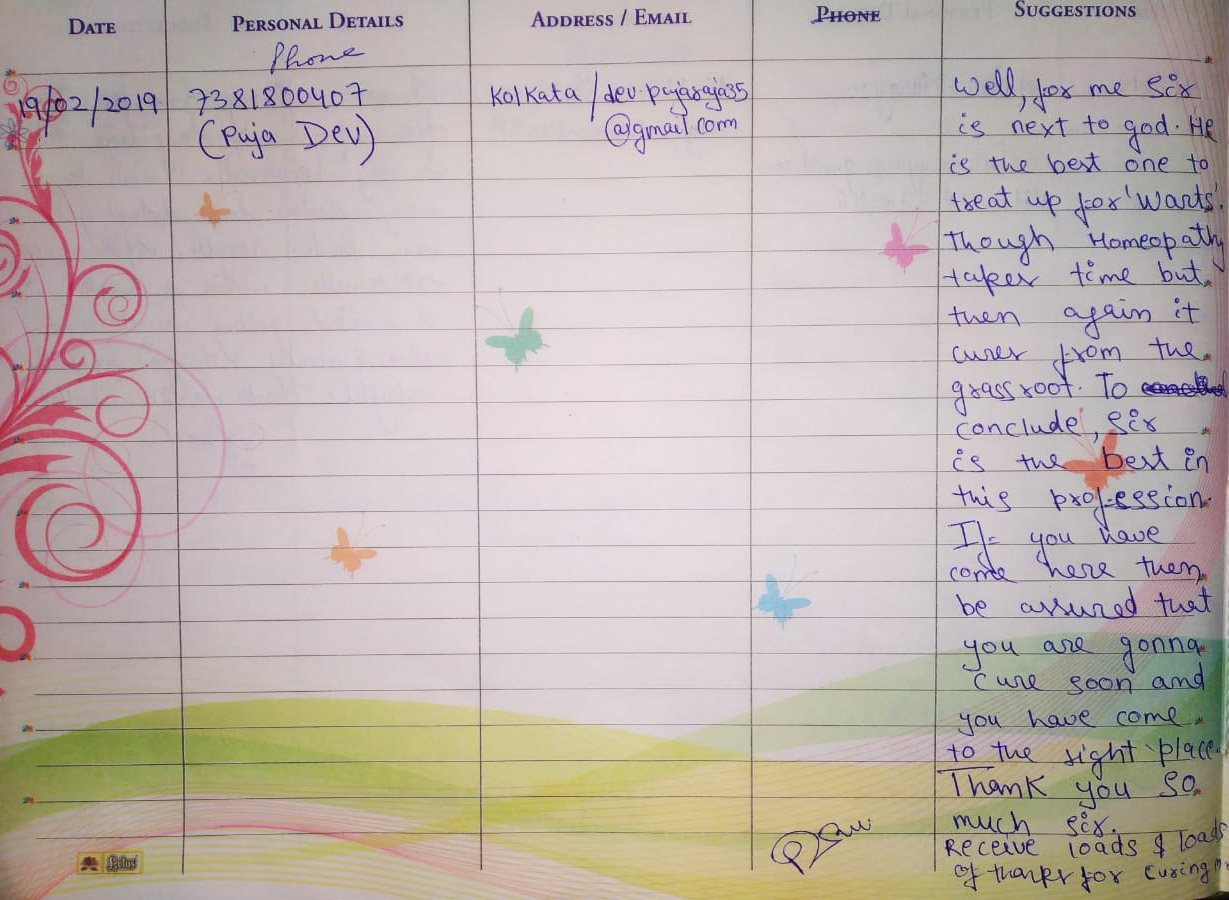 DATE PERSONAL DETAILS ADDRESS / EMAIL PHONE SUGGESTIONS
Phone
19/02/2019 7381800407 Kolkata / dev.pujaraja35
(Puja Dev) @gmail.com
Well, for me Sir
is next to god. He
is the best one to
treat up for 'Warts'.
Though Homeopathy
takes time but
then again it
cures from the
grassroot. To
conclude, Sir
is the best in
this profession.
If you have
come here then
be assured that
you are gonna
cure soon and
you have come
to the right place.
Thank you so
much sir.
Receive loads & loads
of thanks for curing
Lotus